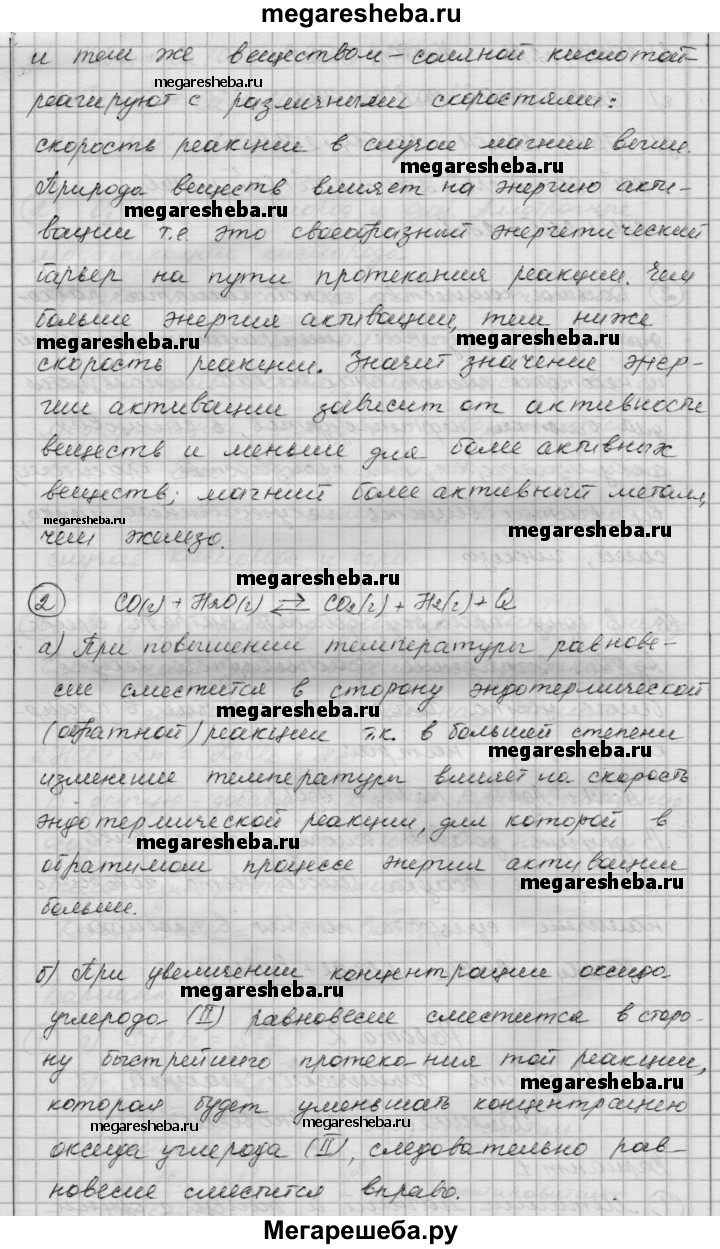 megaresheba.ru
и тем же веществом – соляной кислотой –
megaresheba.ru
реагируют с различными скоростями:
скорость реакции в случае магния выше.
megaresheba.ru
Природа веществ влияет на энергию акти-
megaresheba.ru
вации т.е. это своеобразный энергетический
барьер на пути протекания реакции. Чем
больше энергия активации, тем ниже
megaresheba.ru megaresheba.ru
скорость реакции. Значит значение энер-
гии активации зависит от активности
веществ и меньше для более активных
веществ; магний более активный металл,
megaresheba.ru megaresheba.ru
чем железо.
megaresheba.ru
2 CO(г) + H2O(г) ⇄ CO2(г) + H2(г) + Q
а) При повышении температуры равнове-
сие сместится в сторону эндотермической
megaresheba.ru
(обратной) реакции т.к. в большей степени
megaresheba.ru
изменение температуры влияет на скорость
эндотермической реакции, для которой в
megaresheba.ru
обратимом процессе энергия активации
megaresheba.ru
больше.
б) При увеличении концентрации оксида
megaresheba.ru
углерода (II) равновесие сместится в сторо-
ну быстрейшего протекания той реакции,
megaresheba.ru
которая будет уменьшать концентрацию
megaresheba.ru megaresheba.ru
оксида углерода (II), следовательно рав-
новесие сместится вправо.
Мегарешеба.ру